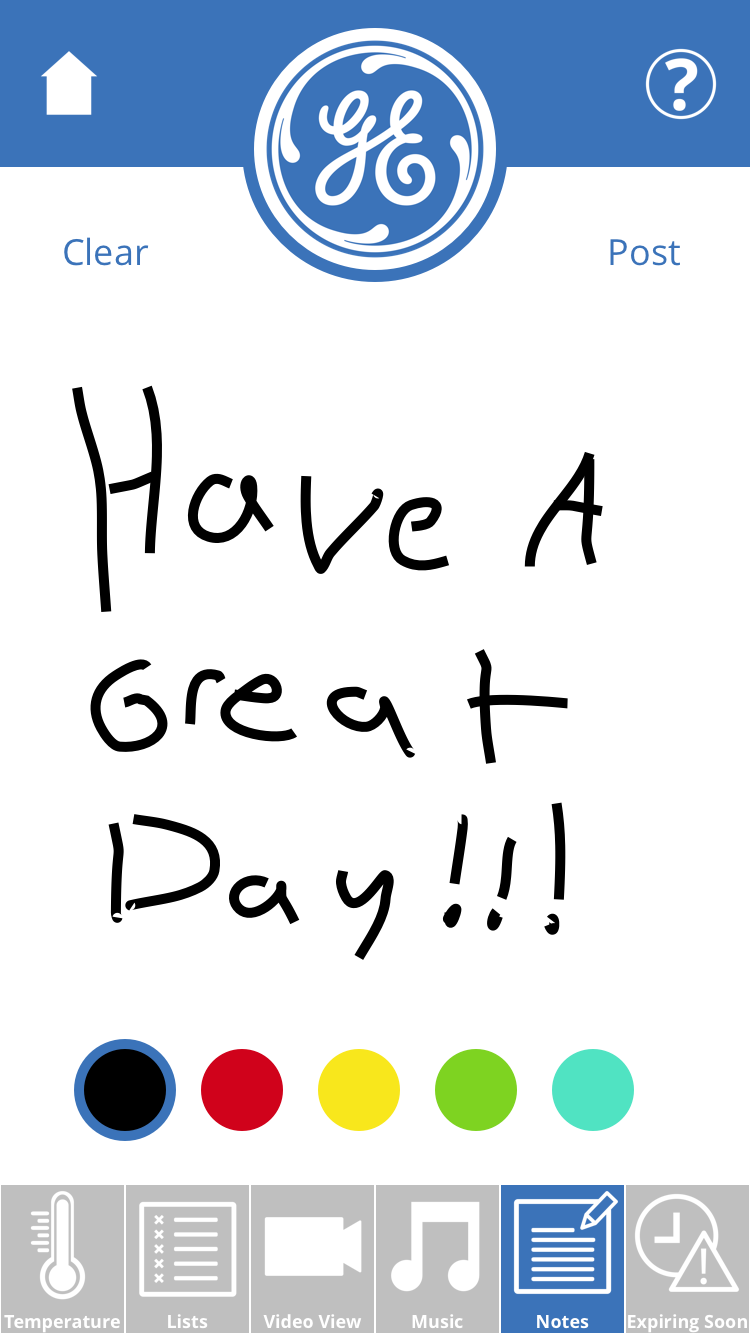 GE
?
Clear
Post
Have A
Great
Day!!!
Temperature
Lists
Video View
Music
Notes
Expiring Soon